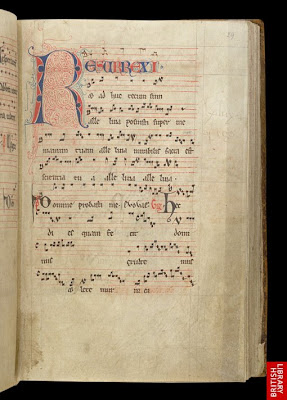 RESURREXI
et ad huc tecum sum
alle luia posuisti super me
manum tuam alle luia mirabilis facta est
scientia tu a alle luia alle luia
Domine probasti me Evovae Gr Hec
di es quam fe cit domi
nus exulte mus
et lete mur in ea
BRITISH
LIBRARY